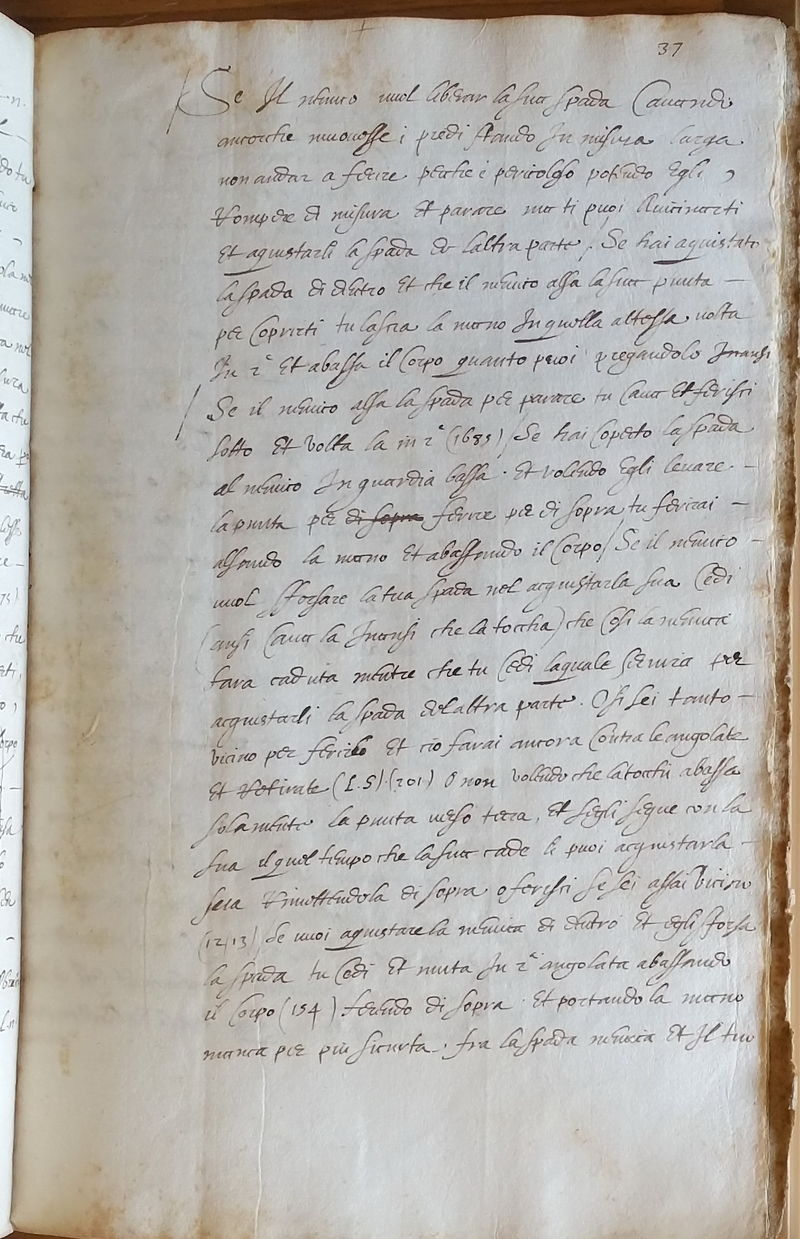 37
Se Il nemico vuol liberar la sua spada Cavando
ancorche movesse i piedi stando In misura larga
non andar a ferire perche è pericoloso potendo Egli ,
Rompere di misura Et parare ma ti puoi Avicinarti
Et aquistarli la spada da laltra parte / Se hai aquistato
la spada di dentro Et che il nemico alsa la sua punta —
per Coprirti tu lascia la mano In quella altessa volta
In 2ª Et abassa il Corpo quanto puoi piegandolo Inansi
Se il nemico alsa la spada per parare tu Cava Et ferisci
sotto Et Volta la in 2ª (168 ) / Se hai Coperto la spada
al nemico In guardia bassa . Et volendo Egli levare —
la punta per di sopra ferire per di sopra tu ferirai —
alsando la mano Et abassando il Corpo / Se il nemico —
vuol sforsare la tua spada nel acquistarla sua Cedi
(ansi Cava la Inansi che la tocchi) che Cosi la nemica
fara caduta mentre che tu Cedi laquale servira per
acquistarli la spada del altra parte . O si sei tanto —
vicino per ferirlo Et cio farai ancora Contra le angolate
Et Retirate (L.S) (201) O non volendo che la tochi abassa
solamente la punta verso terra , Et segli segue con la
sua il quel tempo che la sua cade li puoi acquistarla —
sua Rimettendola di sopra o ferisci se sei assai Vicino
(12,13) Se vuoi aquistare la nemica di dentro Et egli sforsa
la spada tu Cedi Et muta In 2ª angolata abassando
il Corpo (154) ferendo di sopra . Et portando la mano
manca per più sicurta . fra la spada nemica Et Il tuo